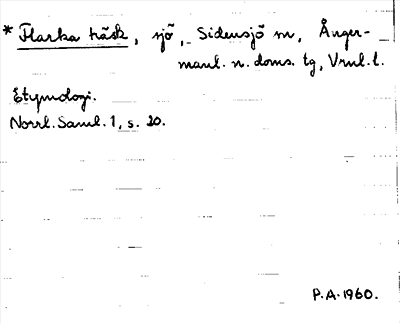 * Flarka träsk, sjö, Sidensjö sn, Ånger-
manl. n. doms. tg, Vnrl. l.
Etymologi.
Norrl. Saml. 1, s. 20.
P.A. 1960.